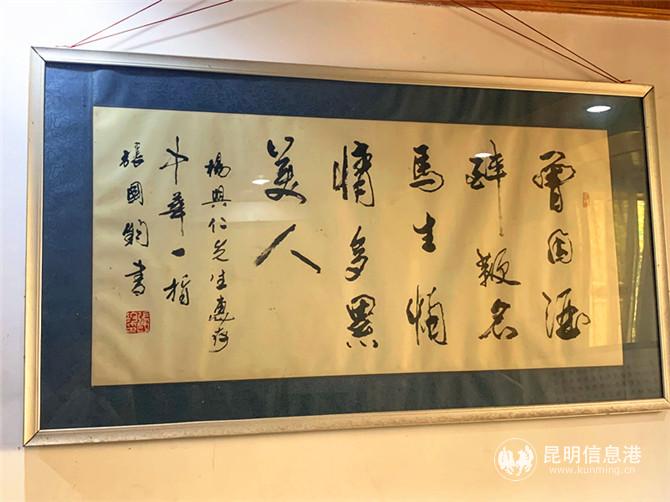 曾因酒
醉鞭名
馬生怕
情多累
美人
楊興仁先生惠存
中華一
張國鈞書
昆明信息港
www.kunming.cn